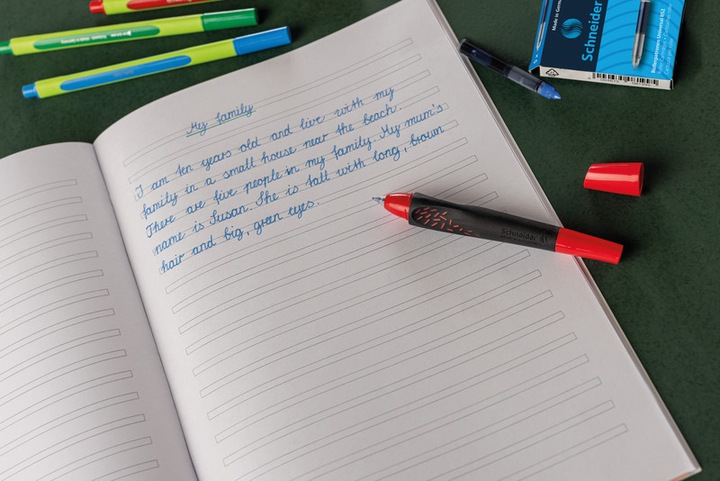 My family
I am ten years old and live with my
family in a small house near the beach.
There are five people in my family. My mum's
name is Susan. She is tall with long, brown
hair and big, green eyes.
Schneider
Schneider
Made in Germany